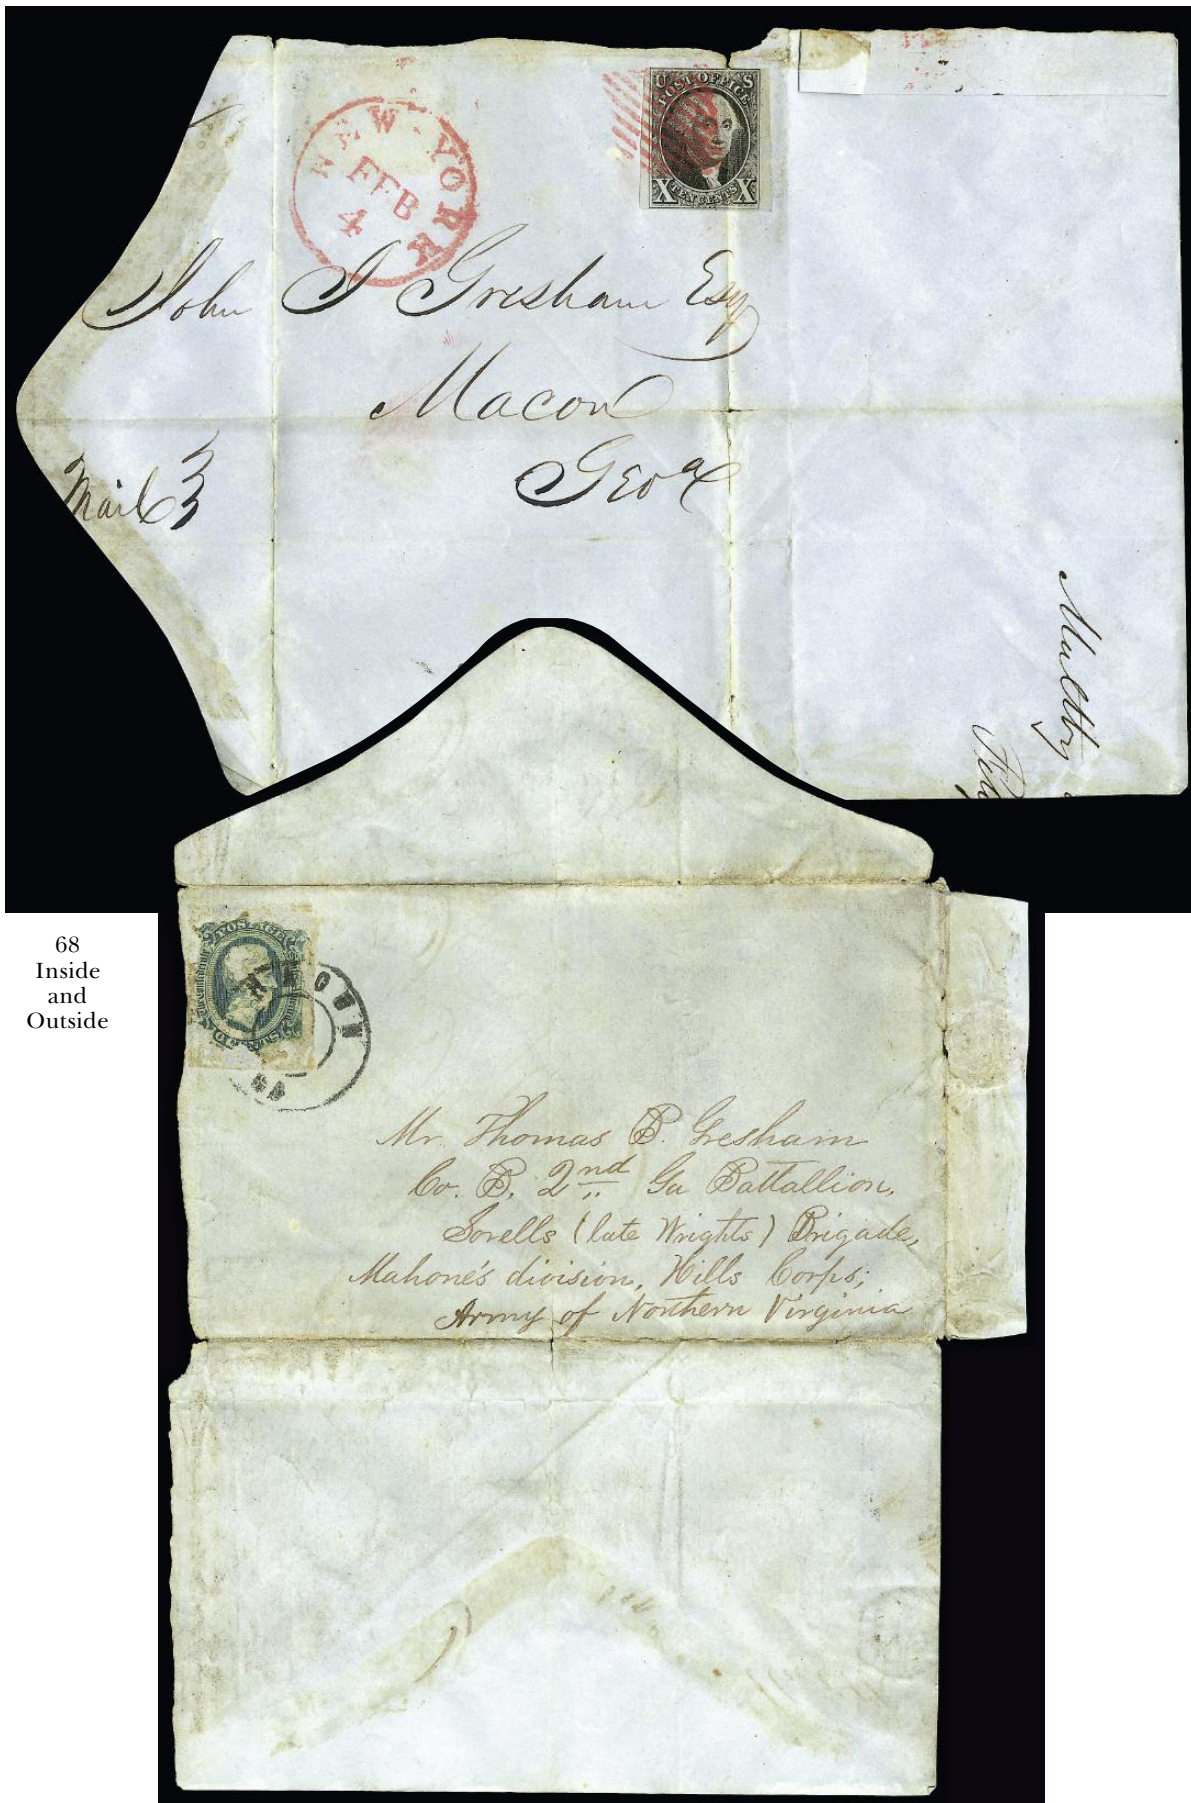 NEW-YORK
FEB
4
U S
POST OFFICE
X TEN CENTS X
John J Gresham Esq
Macon
Geoa
Mail
Maltby
68
Inside
and
Outside
POSTAGE
The Confederate
GA
Mr. Thomas B. Gresham
Co. B. 2nd Ga Battallion,
Sorells (late Wrights) Brigade,
Mahone's division, Hills Corps;
Army of Northern Virginia